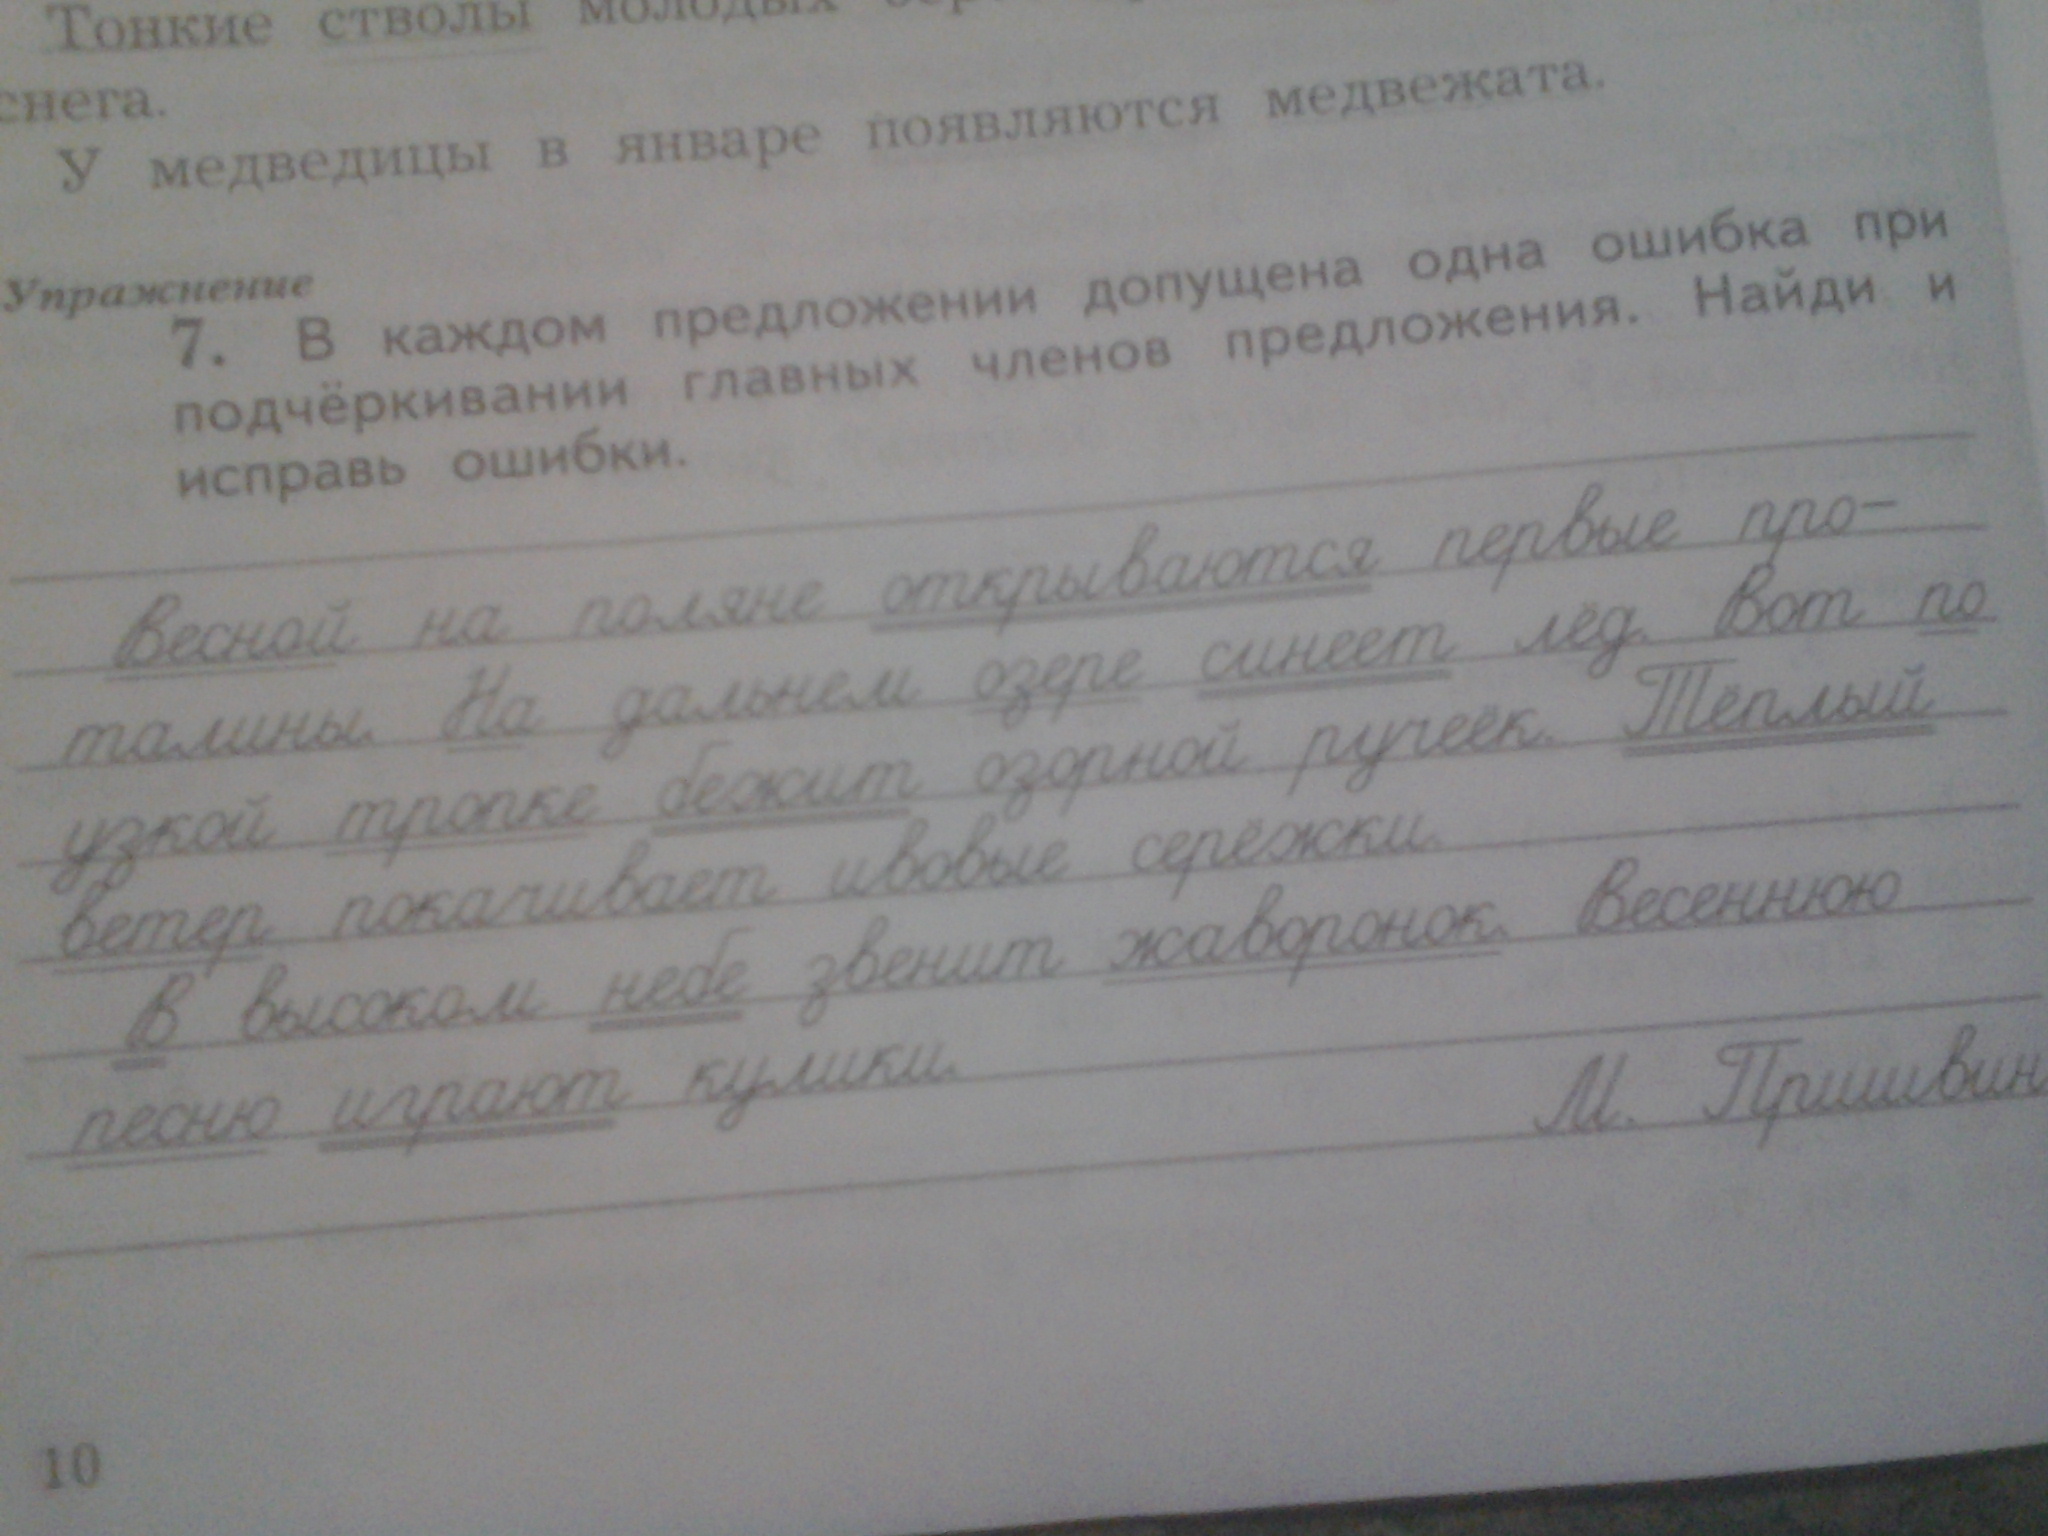 Тонкие стволы молодых
снега.
У медведицы в январе появляются медвежата.
Упражнение
7. В каждом предложении допущена одна ошибка при
подчёркивании главных членов предложения. Найди и
исправь ошибки.
Весной на поляне открываются первые про-
талины. На дальнем озере синеет лёд. Вот по
узкой тропке бежит озорной ручеёк. Тёплый
ветер покачивает ивовые серёжки.
В высоком небе звенит жаворонок. Весеннюю
песню играют кулики.
М. Пришвин
10